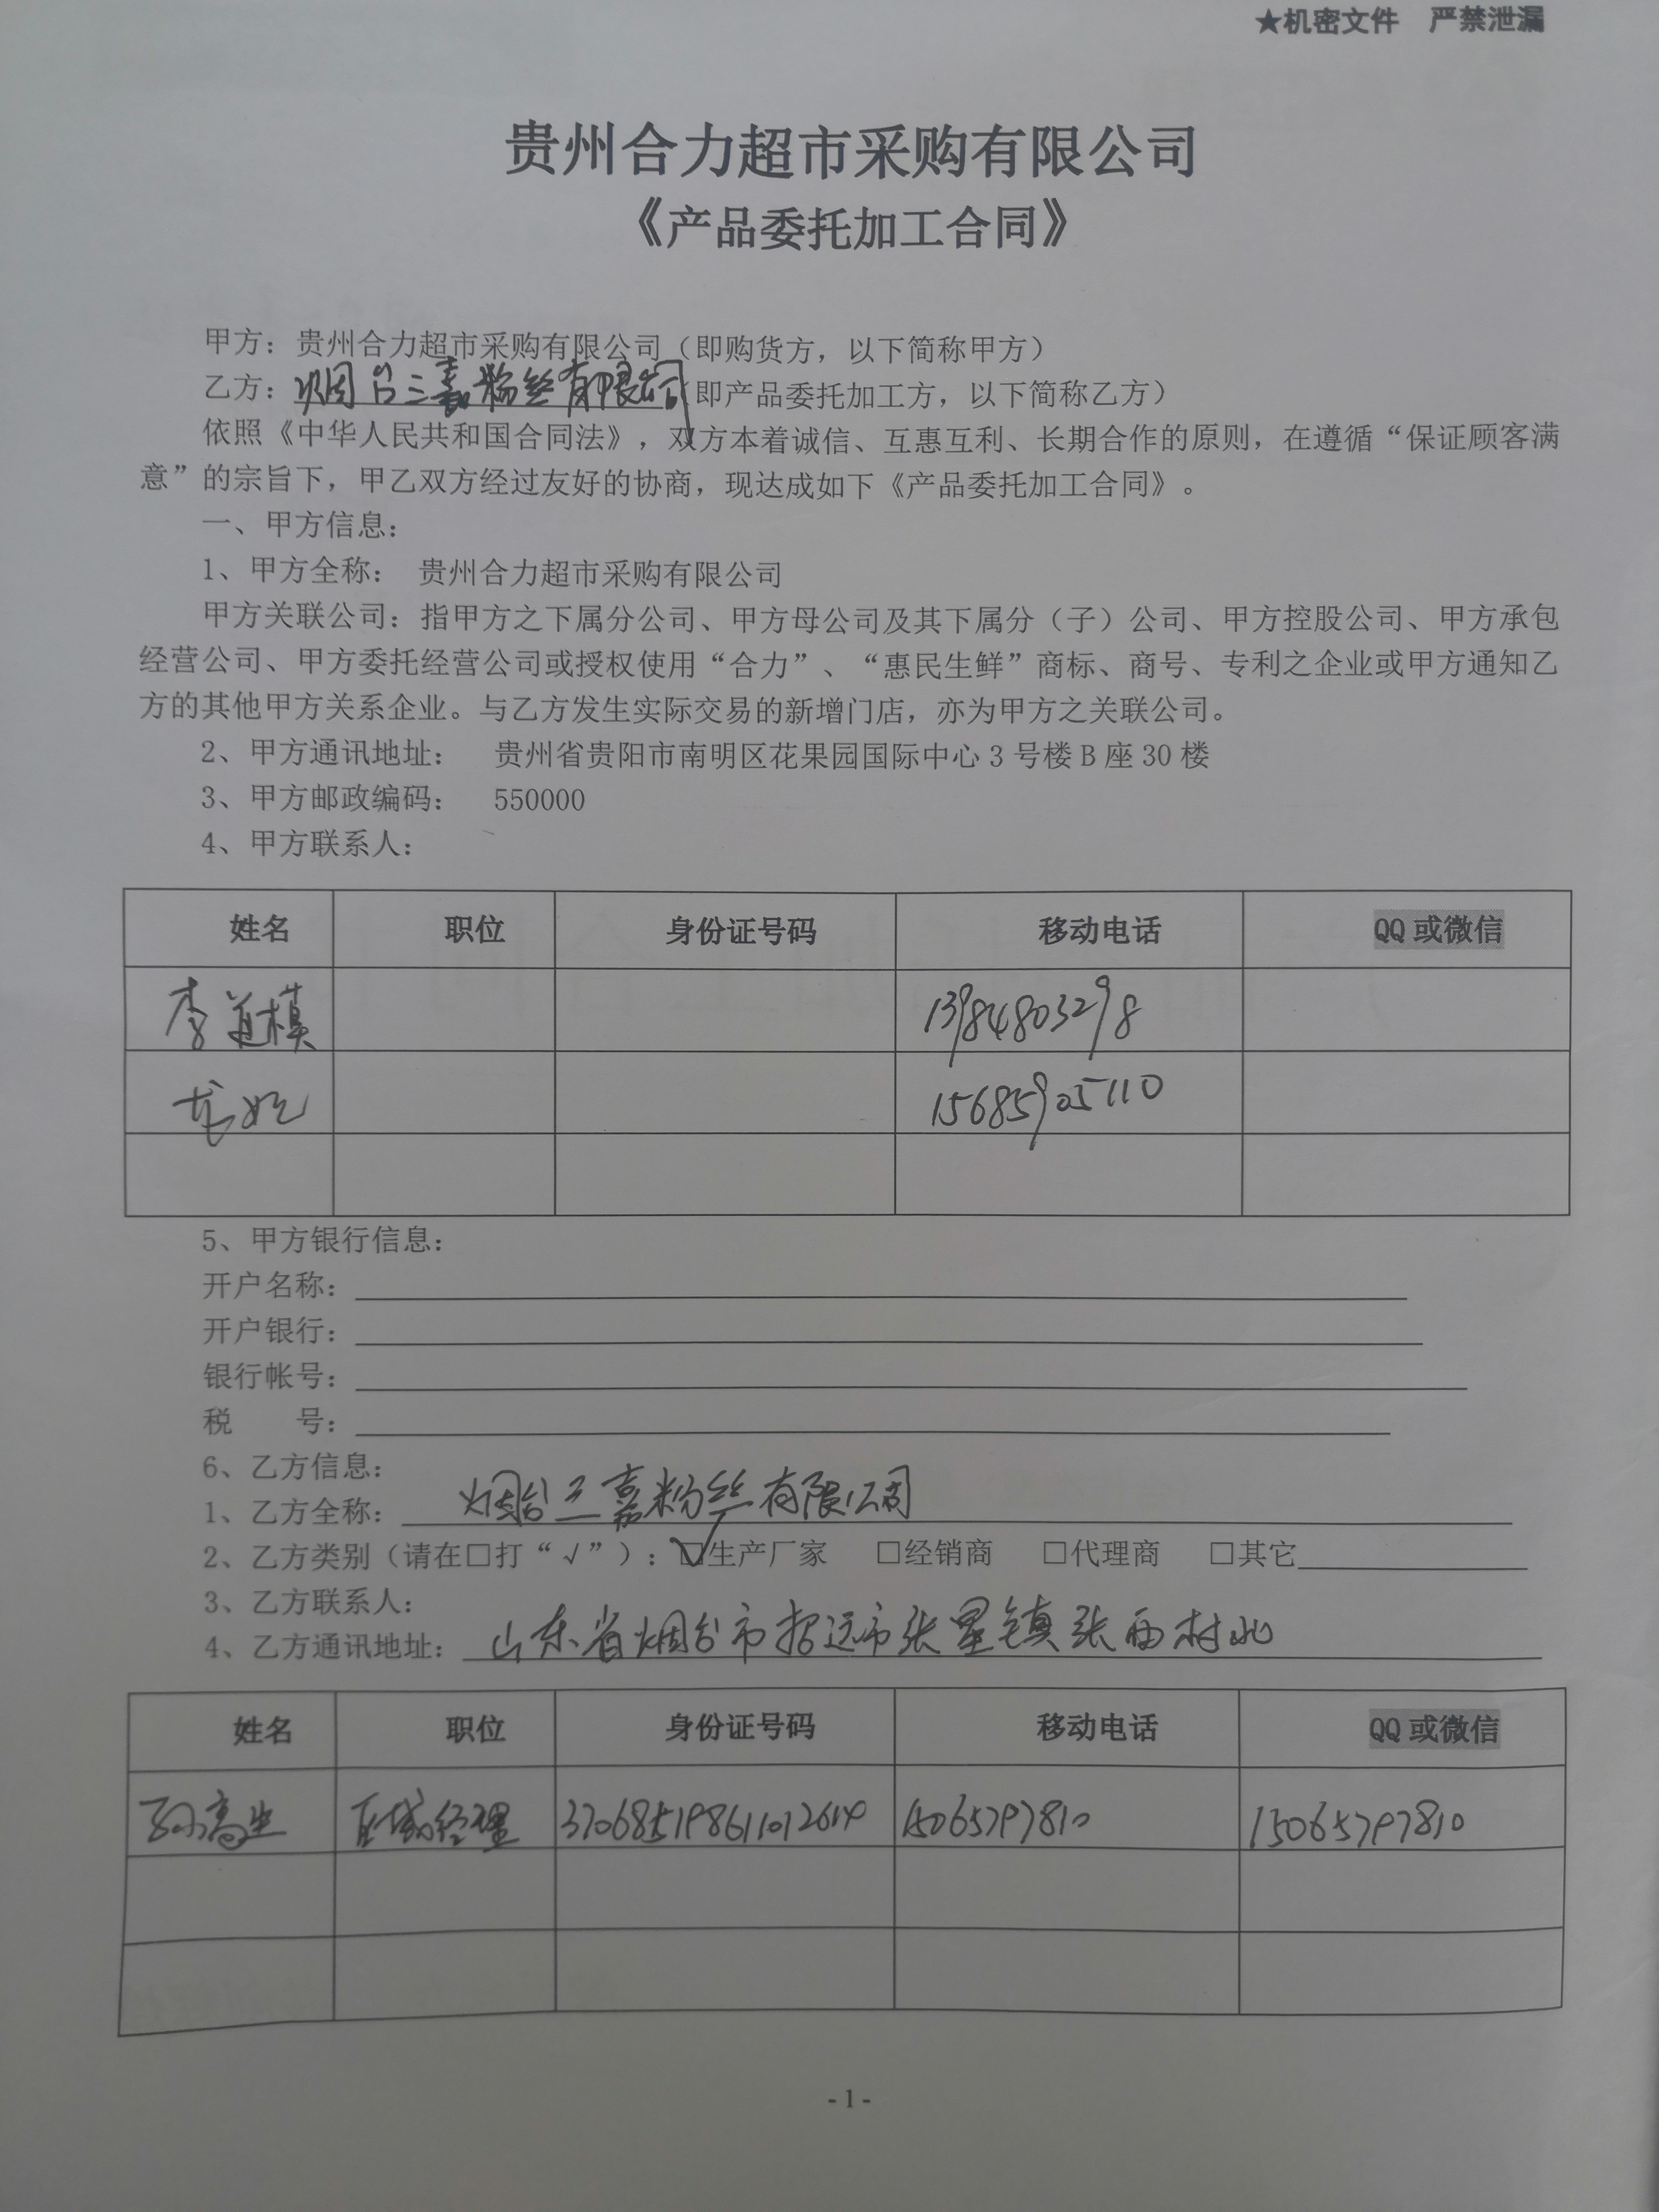 ★机密文件 严禁泄漏
贵州合力超市采购有限公司
《产品委托加工合同》
甲方：贵州合力超市采购有限公司（即购货方，以下简称甲方）
乙方：烟台三嘉粉丝有限公司（即产品委托加工方，以下简称乙方）
依照《中华人民共和国合同法》，双方本着诚信、互惠互利、长期合作的原则，在遵循“保证顾客满
意”的宗旨下，甲乙双方经过友好的协商，现达成如下《产品委托加工合同》。
一、甲方信息：
1、甲方全称： 贵州合力超市采购有限公司
甲方关联公司：指甲方之下属分公司、甲方母公司及其下属分（子）公司、甲方控股公司、甲方承包
经营公司、甲方委托经营公司或授权使用“合力”、“惠民生鲜”商标、商号、专利之企业或甲方通知乙
方的其他甲方关系企业。与乙方发生实际交易的新增门店，亦为甲方之关联公司。
2、甲方通讯地址： 贵州省贵阳市南明区花果园国际中心 3 号楼 B 座 30 楼
3、甲方邮政编码： 550000
4、甲方联系人：
姓名 职位 身份证号码 移动电话 QQ 或微信
李道模 13984803298
龙 15685905110
5、甲方银行信息：
开户名称：
开户银行：
银行帐号：
税 号：
6、乙方信息：
1、乙方全称： 烟台三嘉粉丝有限公司
2、乙方类别（请在□打“√”）：☑生产厂家 □经销商 □代理商 □其它
3、乙方联系人：
4、乙方通讯地址： 山东省烟台市招远市张星镇张西村北
姓名 职位 身份证号码 移动电话 QQ 或微信
孙高生 区域经理 15065797810 15065797810
- 1 -